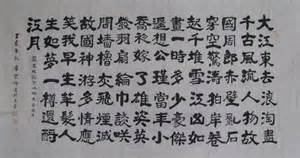 大江東去浪淘盡
千古風流人物故
國周郎赤壁亂石
穿空驚濤拍岸卷
起千堆雪江山如
畫一時多少豪傑
遙想公瑾當年小
喬初嫁了雄姿英
發羽扇綸巾談笑
間檣櫓灰飛煙滅
故國神游多情應
笑我早生華髮人
生如夢一樽還酹
江月